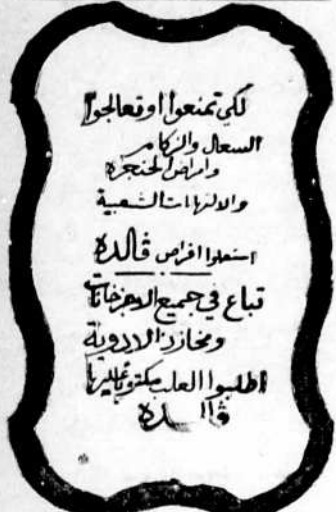 لكي تمنعوا او تعالجوا
السعال والزكام
وامراض الحنجرة
والالتهابات الشعبية
استعملوا اقراص ڤالده
تباع في جميع الاجزاخانات
ومخازن الادوية
اطلبوا العلب مكتوبا عليها
ڤالــده